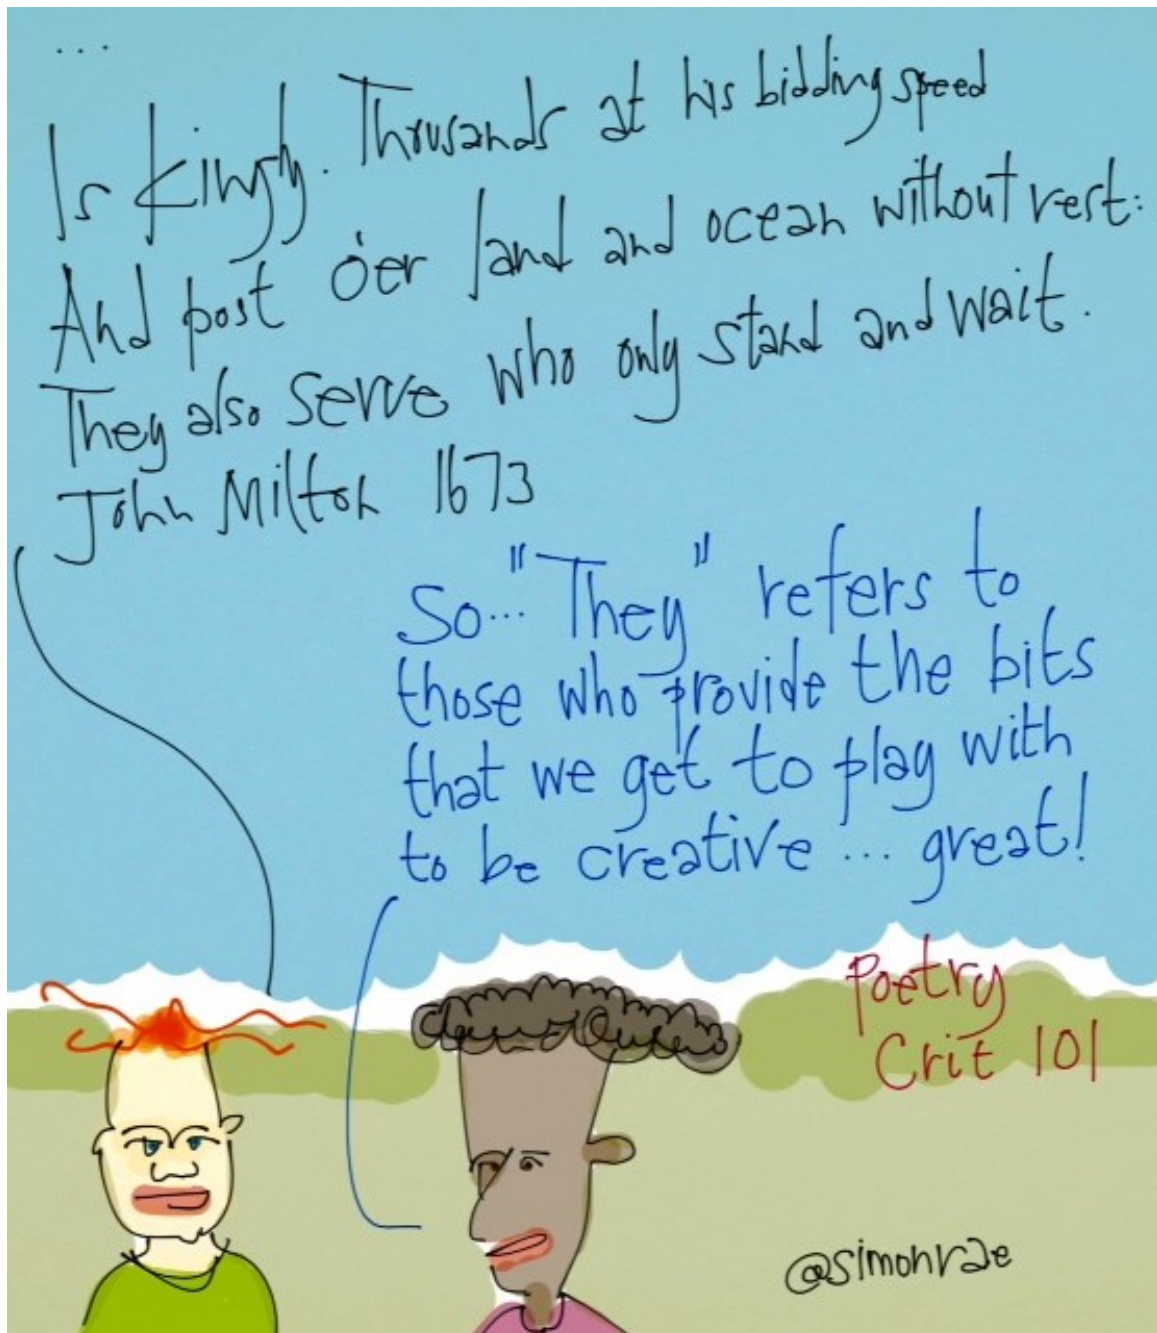 ...
Is kingly. Thousands at his bidding speed
And post o'er land and ocean without rest:
They also serve who only stand and wait.
John Milton 1673
So... "They" refers to
those who provide the bits
that we get to play with
to be creative ... great!
Poetry
Crit 101
@simonrae